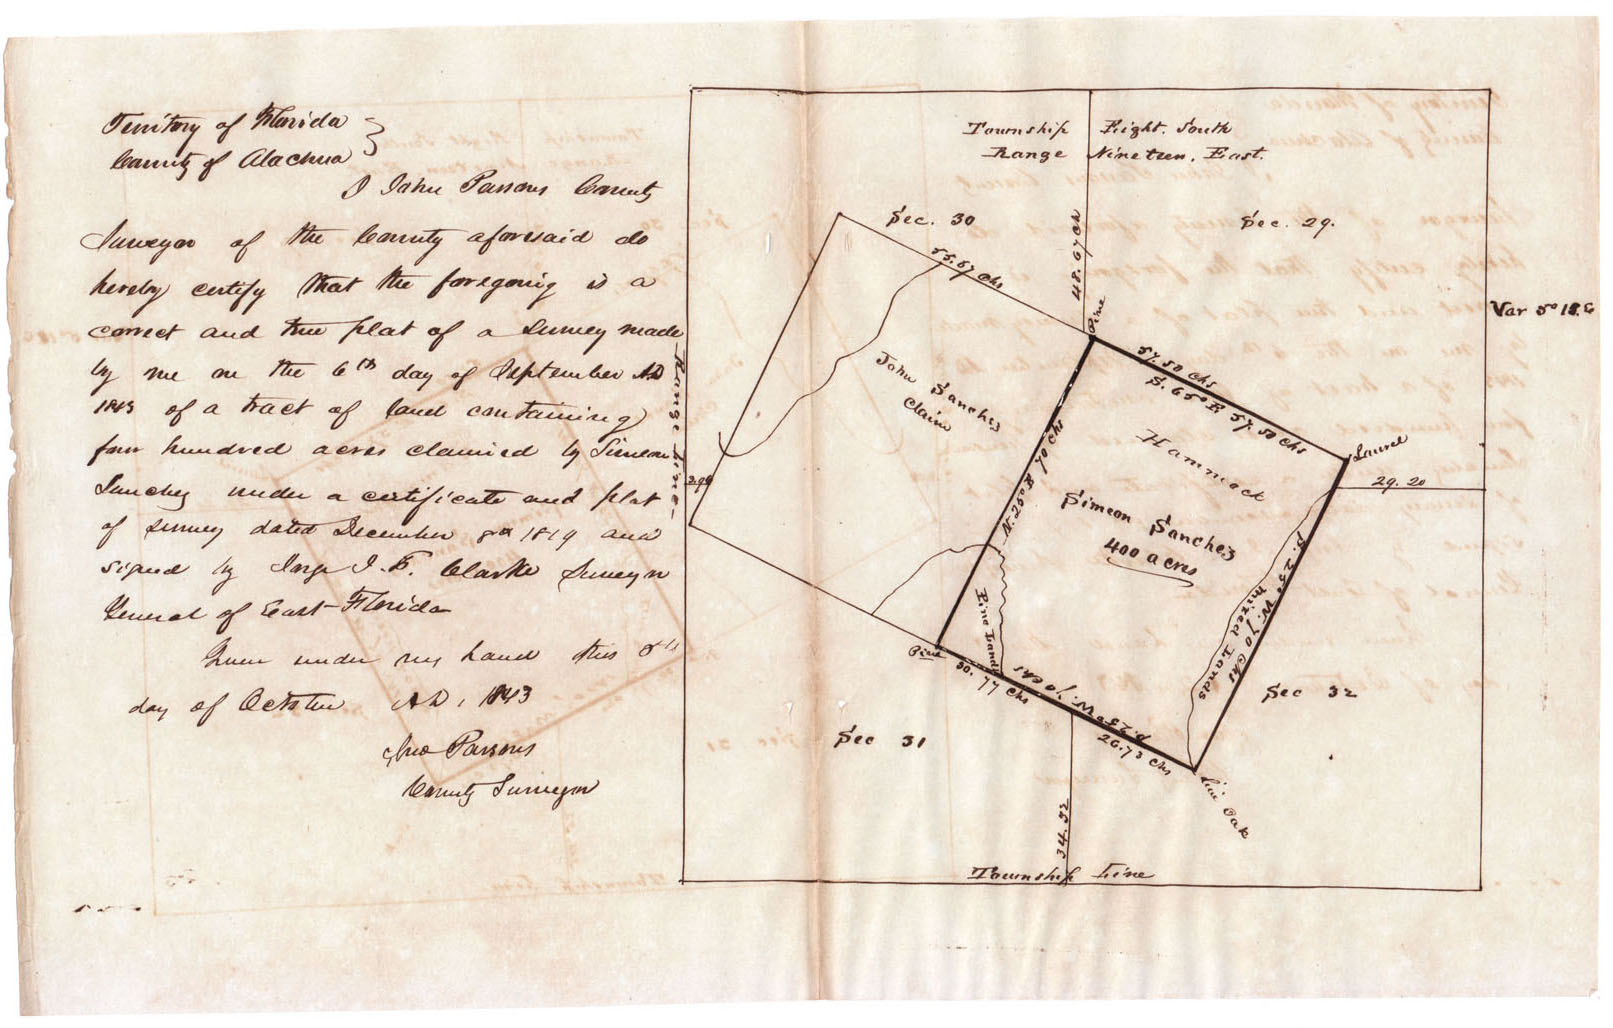 Territory of Florida
County of Alachua
I John Parsons County
Surveyor of the County aforesaid do
hereby certify that the foregoing is a
correct and true plat of a Survey made
by me on the 6th day of September AD
1843 of a tract of land containing
four hundred acres claimed by Simeon
Sanchez under a certificate and plat
of survey dated December 8th 1819 and
signed by Jorge J. F. Clarke Surveyor
General of East Florida
Given under my hand this
day of October AD, 1843
Jno Parsons
County Surveyor
Township Eight. South
Range Nineteen. East.
Sec. 30
Sec. 29.
55.67 Chs
48.67 Ch
Pine
Var 5° 18. E
57.50 Chs
S. 65° E 57.50 Chs
John Sanchez
Claim
Range Line
Hammock
Laurel
29.20
3.96
N. 25° E 70 Chs
Simeon Sanchez
400 acres
S. 25° W. 70 Chs
Mixed Lands
Pine Land
Pine
30.77 Chs
26.73 Chs
Live Oak
Sec 32
Sec 31
34.32
Township Line